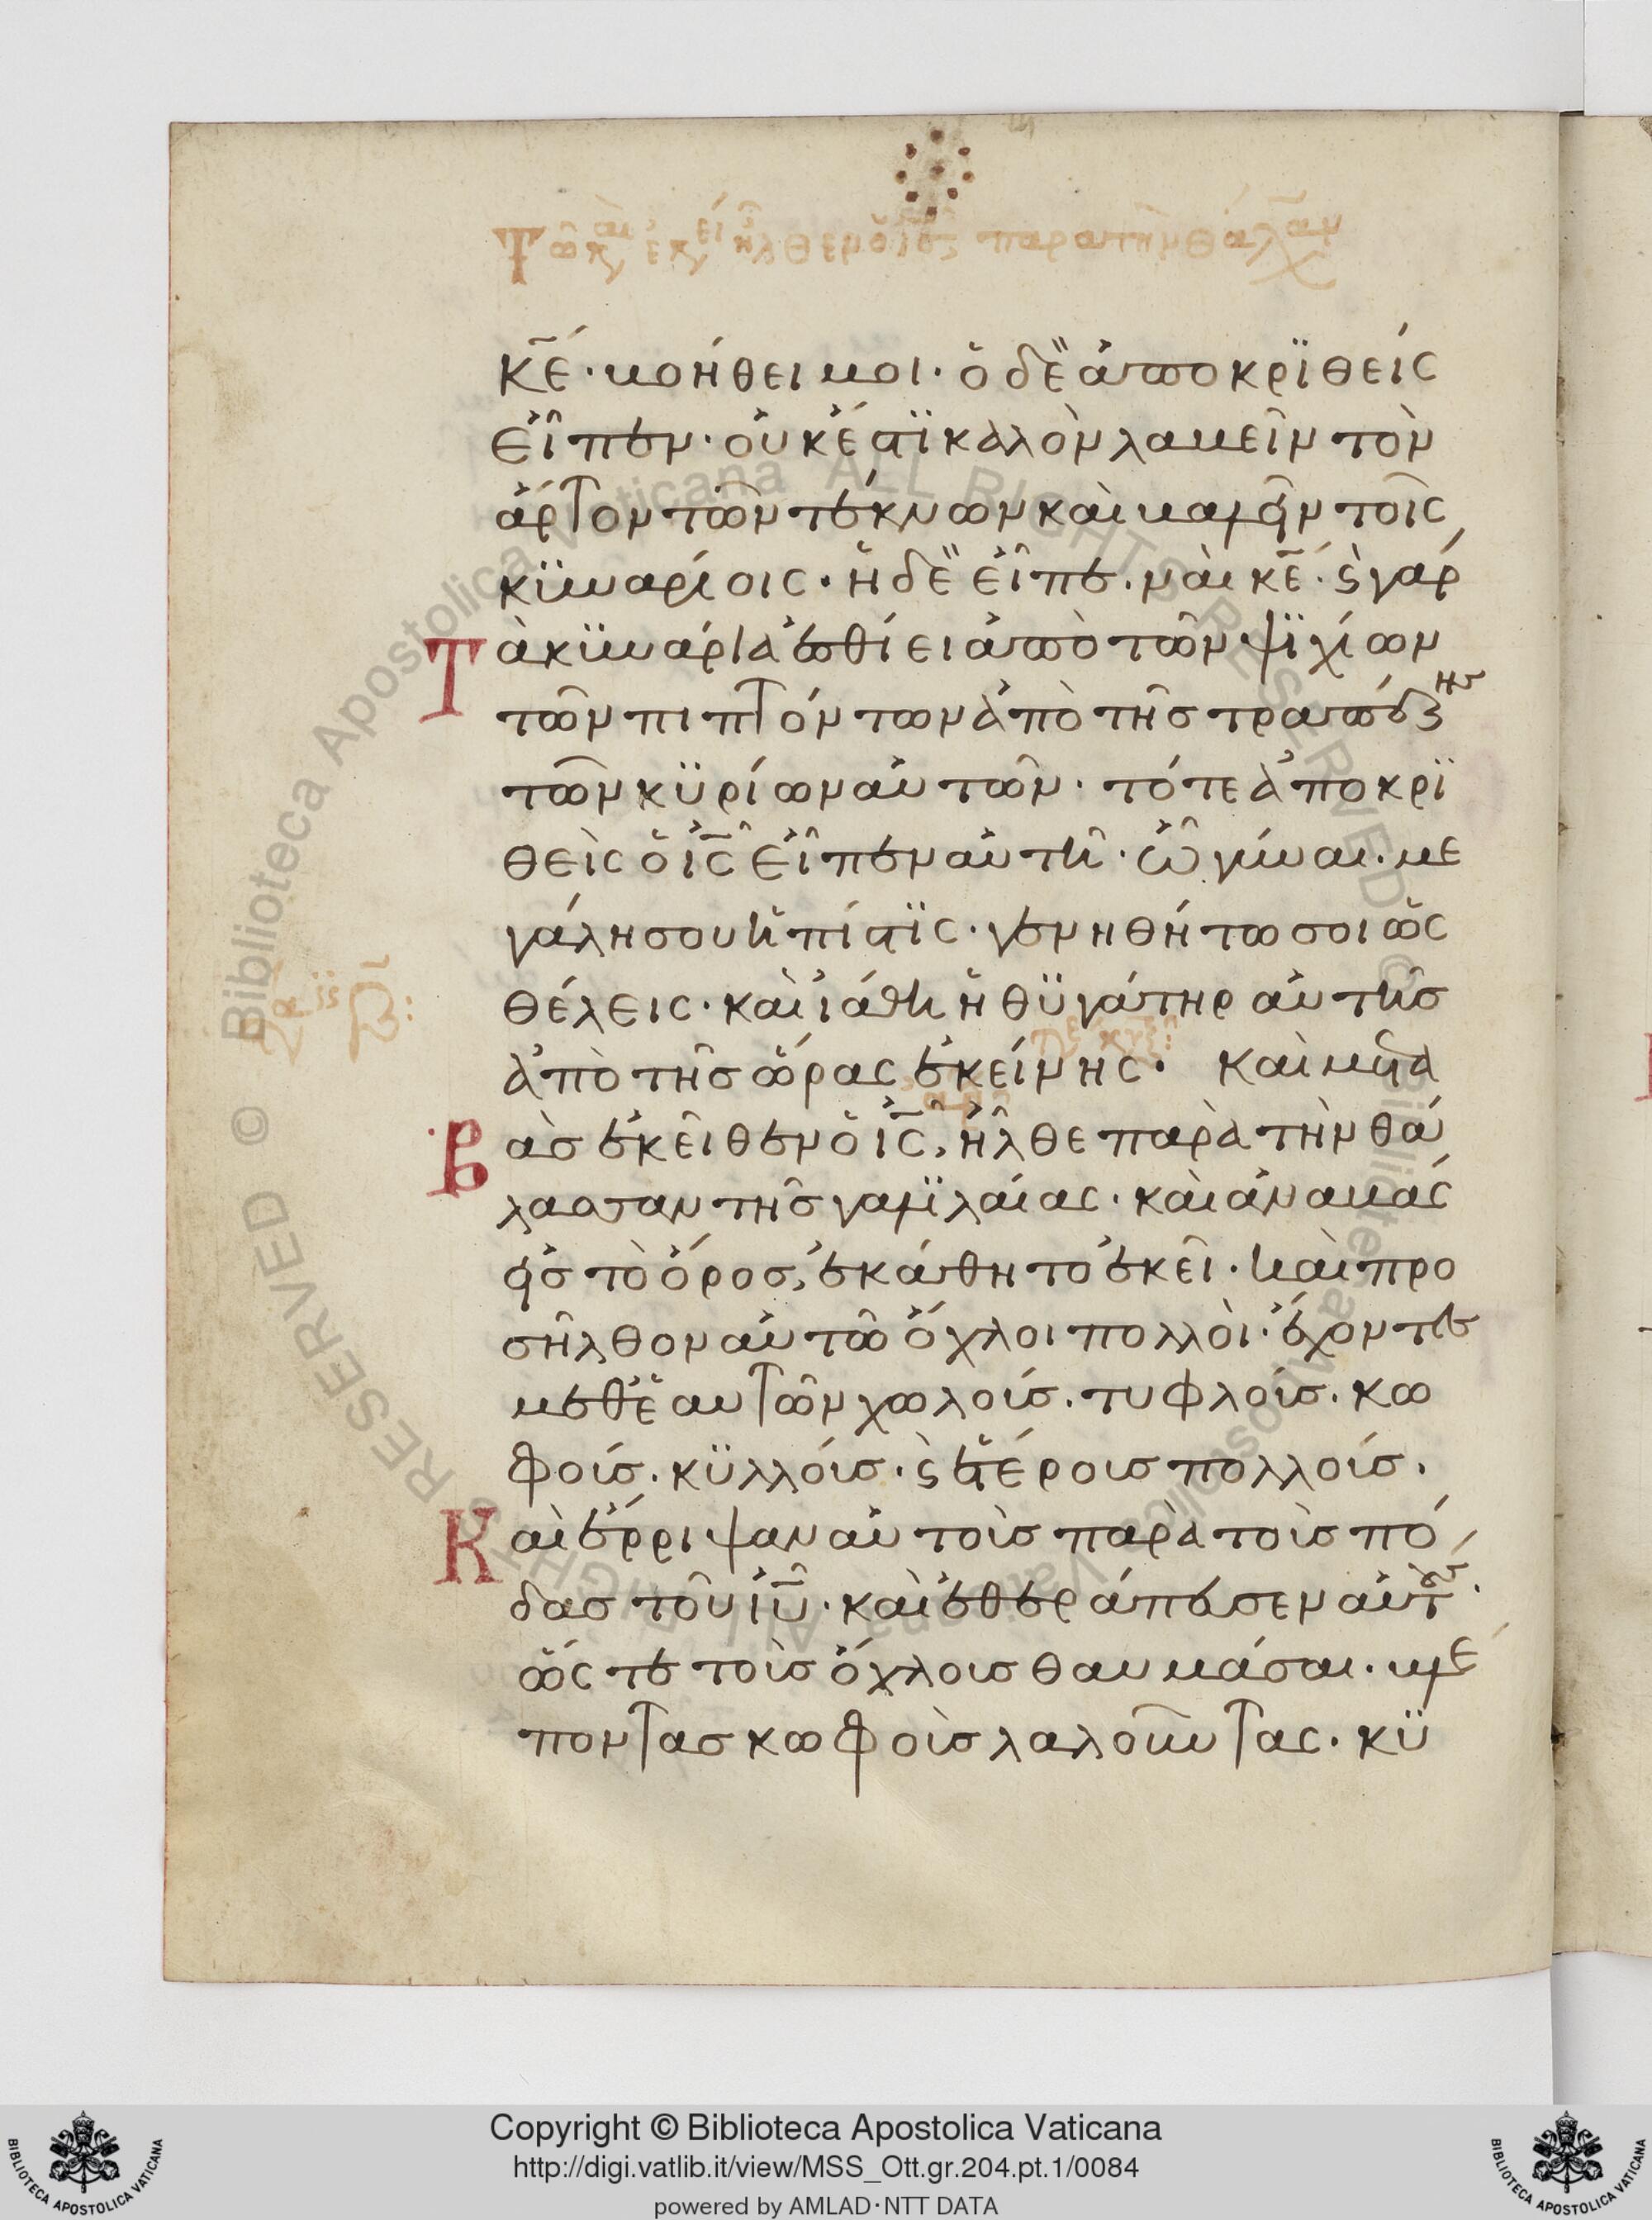 Τῶ καιρῶ ἐκείνω ἦλθεν ὁ ἰς παρὰ τὴν θάλασσαν
κ̅ε̅· βοήθει μοι· ὁ δὲ ἀποκρϊθεὶς
εἶπεν· οὐκ ἔστϊ καλὸν λαβεῖν τὸν
ἄρτον τῶν τέκνων καὶ βαλεῖν τοῖς
κϋναρίοις· ἡ δὲ εἶπε· ναὶ κ̅ε̅· ϛ γὰρ
Τὰ κϋνάρια ἐσθίει ἀπὸ τῶν ψϊχίων
τῶν πιπτόντων ἀπὸ τῆς τραπέζης
τῶν κϋρίων αὐτῶν· τότε ἀποκρϊ
θεὶς ὁ ι̅ς̅ εἶπεν αὐτῆ· ὦ γύναι· με
γάλη σου ἡ πίστϊς· γενηθήτω σοι ὡς
θέλεις· καὶ ἰάθη ἡ θϋγάτηρ αὐτῆς
ἀπὸ τῆς ὥρας ἐκείνης· Καὶ μετα
Βὰς ἐκεῖθεν ὁ ι̅ς̅, ἦλθε παρὰ τὴν θά
λασσαν τῆς γαλϊλαίας· καὶ ἀναβὰς
εἰς τὸ ὄρος, ἐκάθητο ἐκεῖ· καὶ προ
σῆλθον αὐτῶ ὄχλοι πολλοὶ· ἔχοντες
μεθ ἑαυτῶν χωλούς· τυφλούς· κω
φούς· κϋλλούς· ϛ ἑτέρους πολλούς·
Καὶ ἔρριψαν αὐτοὺς παρὰ τοὺς πό
δας τοῦ ι̅υ̅· καὶ ἐθεράπευσεν αὐτούς·
ὥστε τοὺς ὄχλους θαυμάσαι· βλέ
ποντας κωφοὺς λαλοῦντας· κϋ
Copyright © Biblioteca Apostolica Vaticana
http://digi.vatlib.it/view/MSS_Ott.gr.204.pt.1/0084
powered by AMLAD·NTT DATA